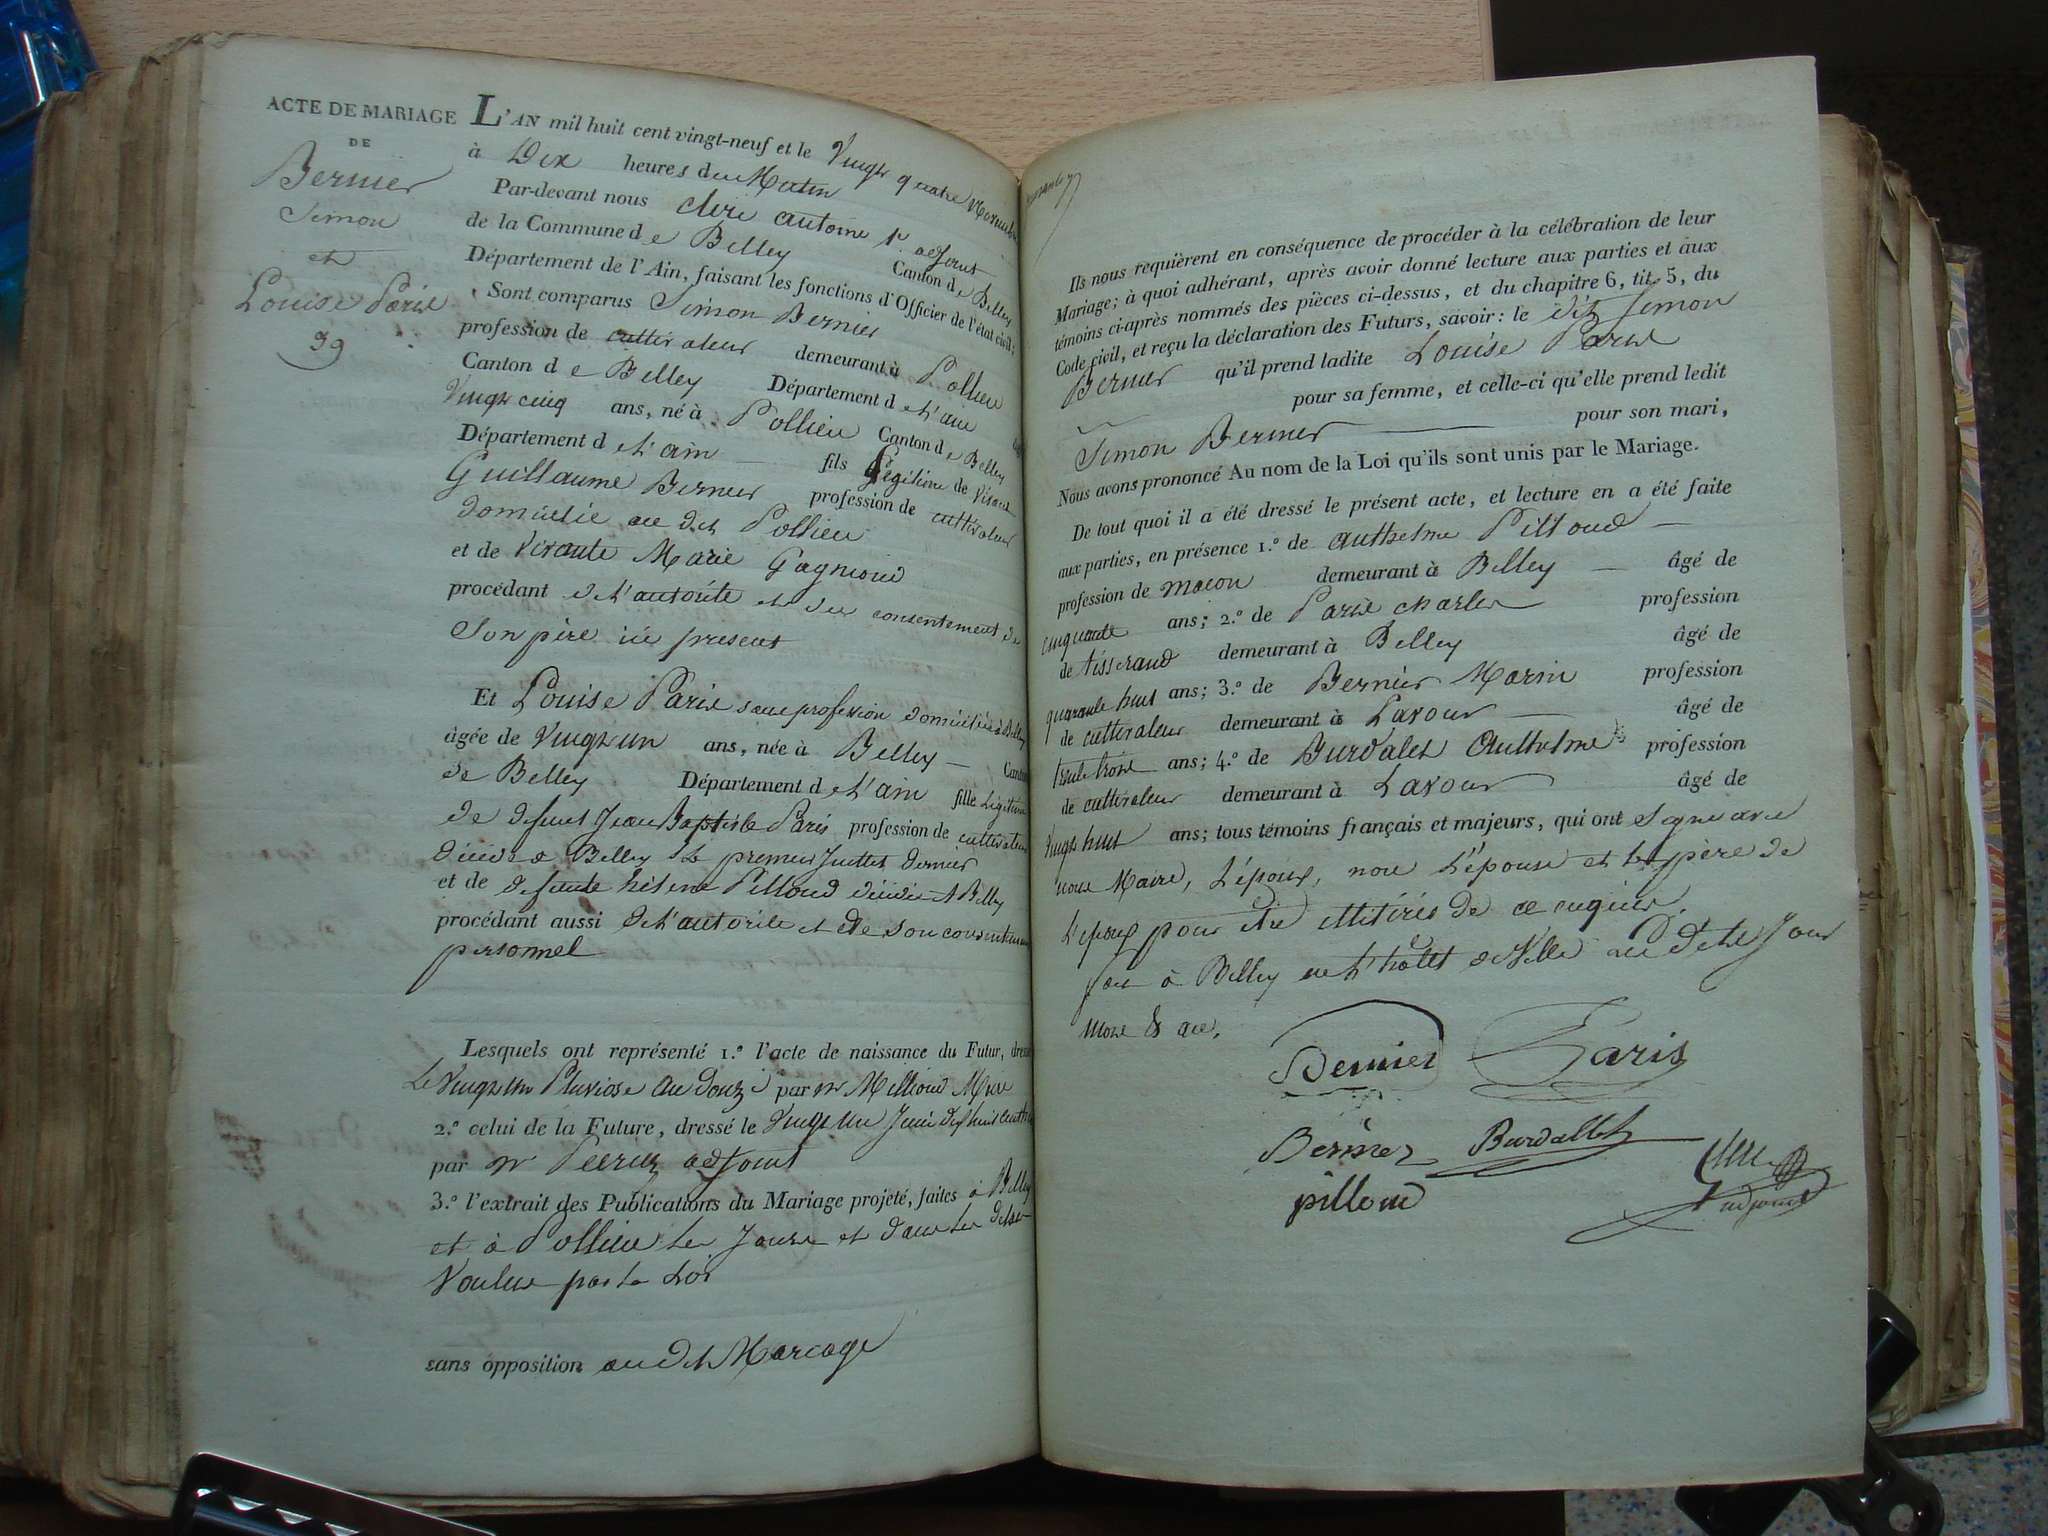 ACTE DE MARIAGE
DE
Bernier
Simon
et
Louise Paris
39
L'AN mil huit cent vingt-neuf et le Vingt quatre Novembre
à Dix heures du Matin
Par-devant nous Clerc antoine 1r adjoint
de la Commune de Belley Canton de Belley
Département de l'Ain, faisant les fonctions d'Officier de l'état civil;
Sont comparus Simon Bernier
profession de cultivateur demeurant à Pollieu
Canton de Belley Département de l'ain
Vingt cinq ans, né à Pollieu Canton de Belley
Département de l'ain fils légitime de vivant
Guillaume Bernier profession de cultivateur
domicilié au dit Pollieu
et de vivante Marie Gagnioud
procédant de l'autorité et du consentement de
Son père ici présent
Et Louise Paris sans profession domiciliée à Belley
âgée de Vingt un ans, née à Belley Canton
de Belley Département de l'ain fille légitime
de defunt Jean Baptiste Paris profession de cultivateur
décédé à Belley le premier Juillet dernier
et de defunte hélène Pilloud décédée A Belley
procédant aussi de l'autorité et de son consentement
personnel
Lesquels ont représenté 1.º l'acte de naissance du Futur, dressé
Le Vingt un Pluviose an douze par mr Millioud Maire
2.º celui de la Future, dressé le Vingt un Juin dix huit cent
par mr adjoint
3.º l'extrait des Publications du Mariage projeté, faites à Belley
et à Pollieu les Jours et dans les délais
Voulus par la Loi
sans opposition au dit Mariage
Ils nous requièrent en conséquence de procéder à la célébration de leur
Mariage; à quoi adhérant, après avoir donné lecture aux parties et aux
témoins ci-après nommés des pièces ci-dessus, et du chapitre 6, tit. 5, du
Code civil, et reçu la déclaration des Futurs, savoir: le dit Simon
Bernier qu'il prend ladite Louise Paris
pour sa femme, et celle-ci qu'elle prend ledit
Simon Bernier pour son mari,
Nous avons prononcé Au nom de la Loi qu'ils sont unis par le Mariage.
De tout quoi il a été dressé le présent acte, et lecture en a été faite
aux parties, en présence 1.º de Anthelme Pilloud
profession de macon demeurant à Belley âgé de
cinquante ans; 2.º de Paris charles profession
de tisserand demeurant à Belley âgé de
quarante huit ans; 3.º de Bernier Marin profession
de cultivateur demeurant à Lavour âgé de
trente trois ans; 4.º de Burdalet Anthelme profession
de cultivateur demeurant à Lavour âgé de
vingt huit ans; tous témoins français et majeurs, qui ont signé avec
nous Maire, L'époux, non L'épouse et le père de
L'époux pour être illitérés de ce enquis.
fait à Belley en l'hôtel de Ville les dits Jour
Mois & an.
Bernier Paris
Bernier Burdallet
pilloud
Clerc
adjoint